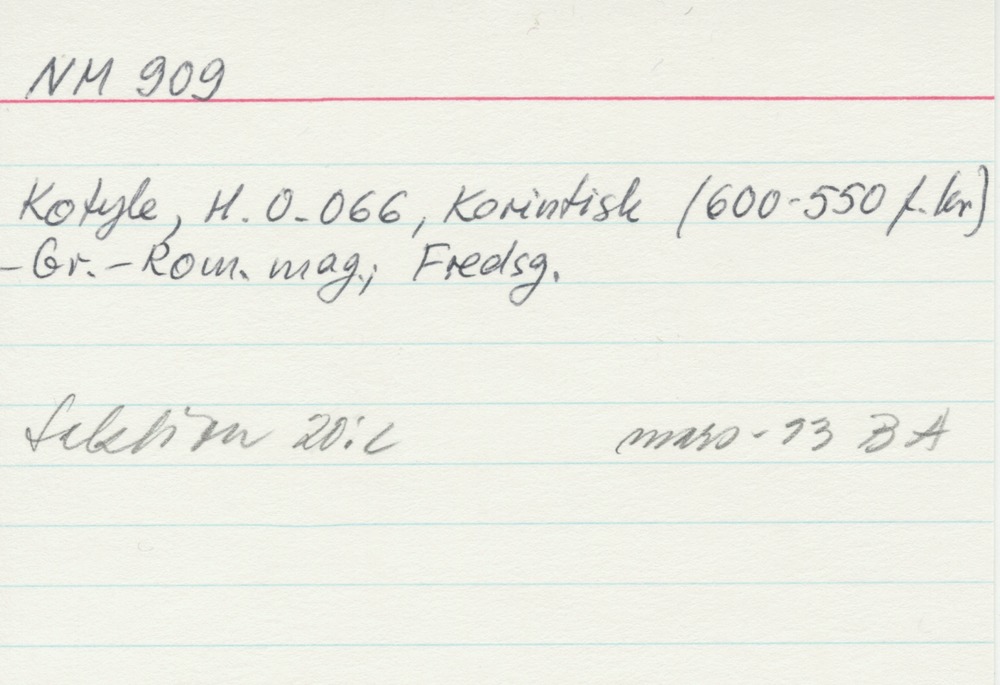 NM 909
Kotyle, H.0-066, Korintisk (600-550 f.kr)
-Gr.-Rom. mag.; Fredsg.
Sektion 20:2 mars-93 BA